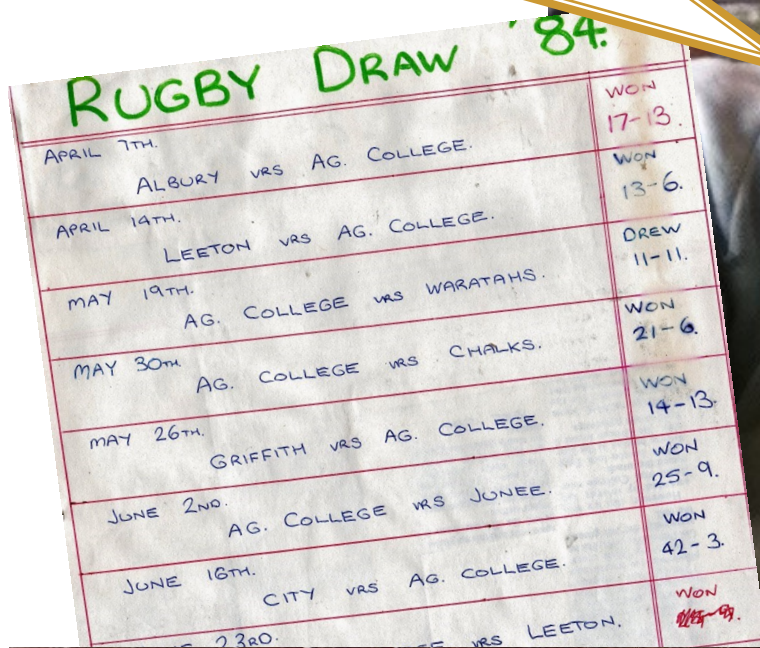 RUGBY DRAW '84.
APRIL 7TH.
ALBURY VRS AG. COLLEGE.
WON
17-13.
APRIL 14TH.
LEETON VRS AG. COLLEGE.
WON
13-6.
MAY 19TH.
AG. COLLEGE VRS WARATAHS.
DREW
11-11.
MAY 30TH.
AG. COLLEGE VRS CHALKS.
WON
21-6.
MAY 26TH.
GRIFFITH VRS AG. COLLEGE.
WON
14-13.
JUNE 2ND.
AG. COLLEGE VRS JUNEE.
WON
25-9.
JUNE 16TH.
CITY VRS AG. COLLEGE.
WON
42-3.
23RD.
VRS LEETON.
WON